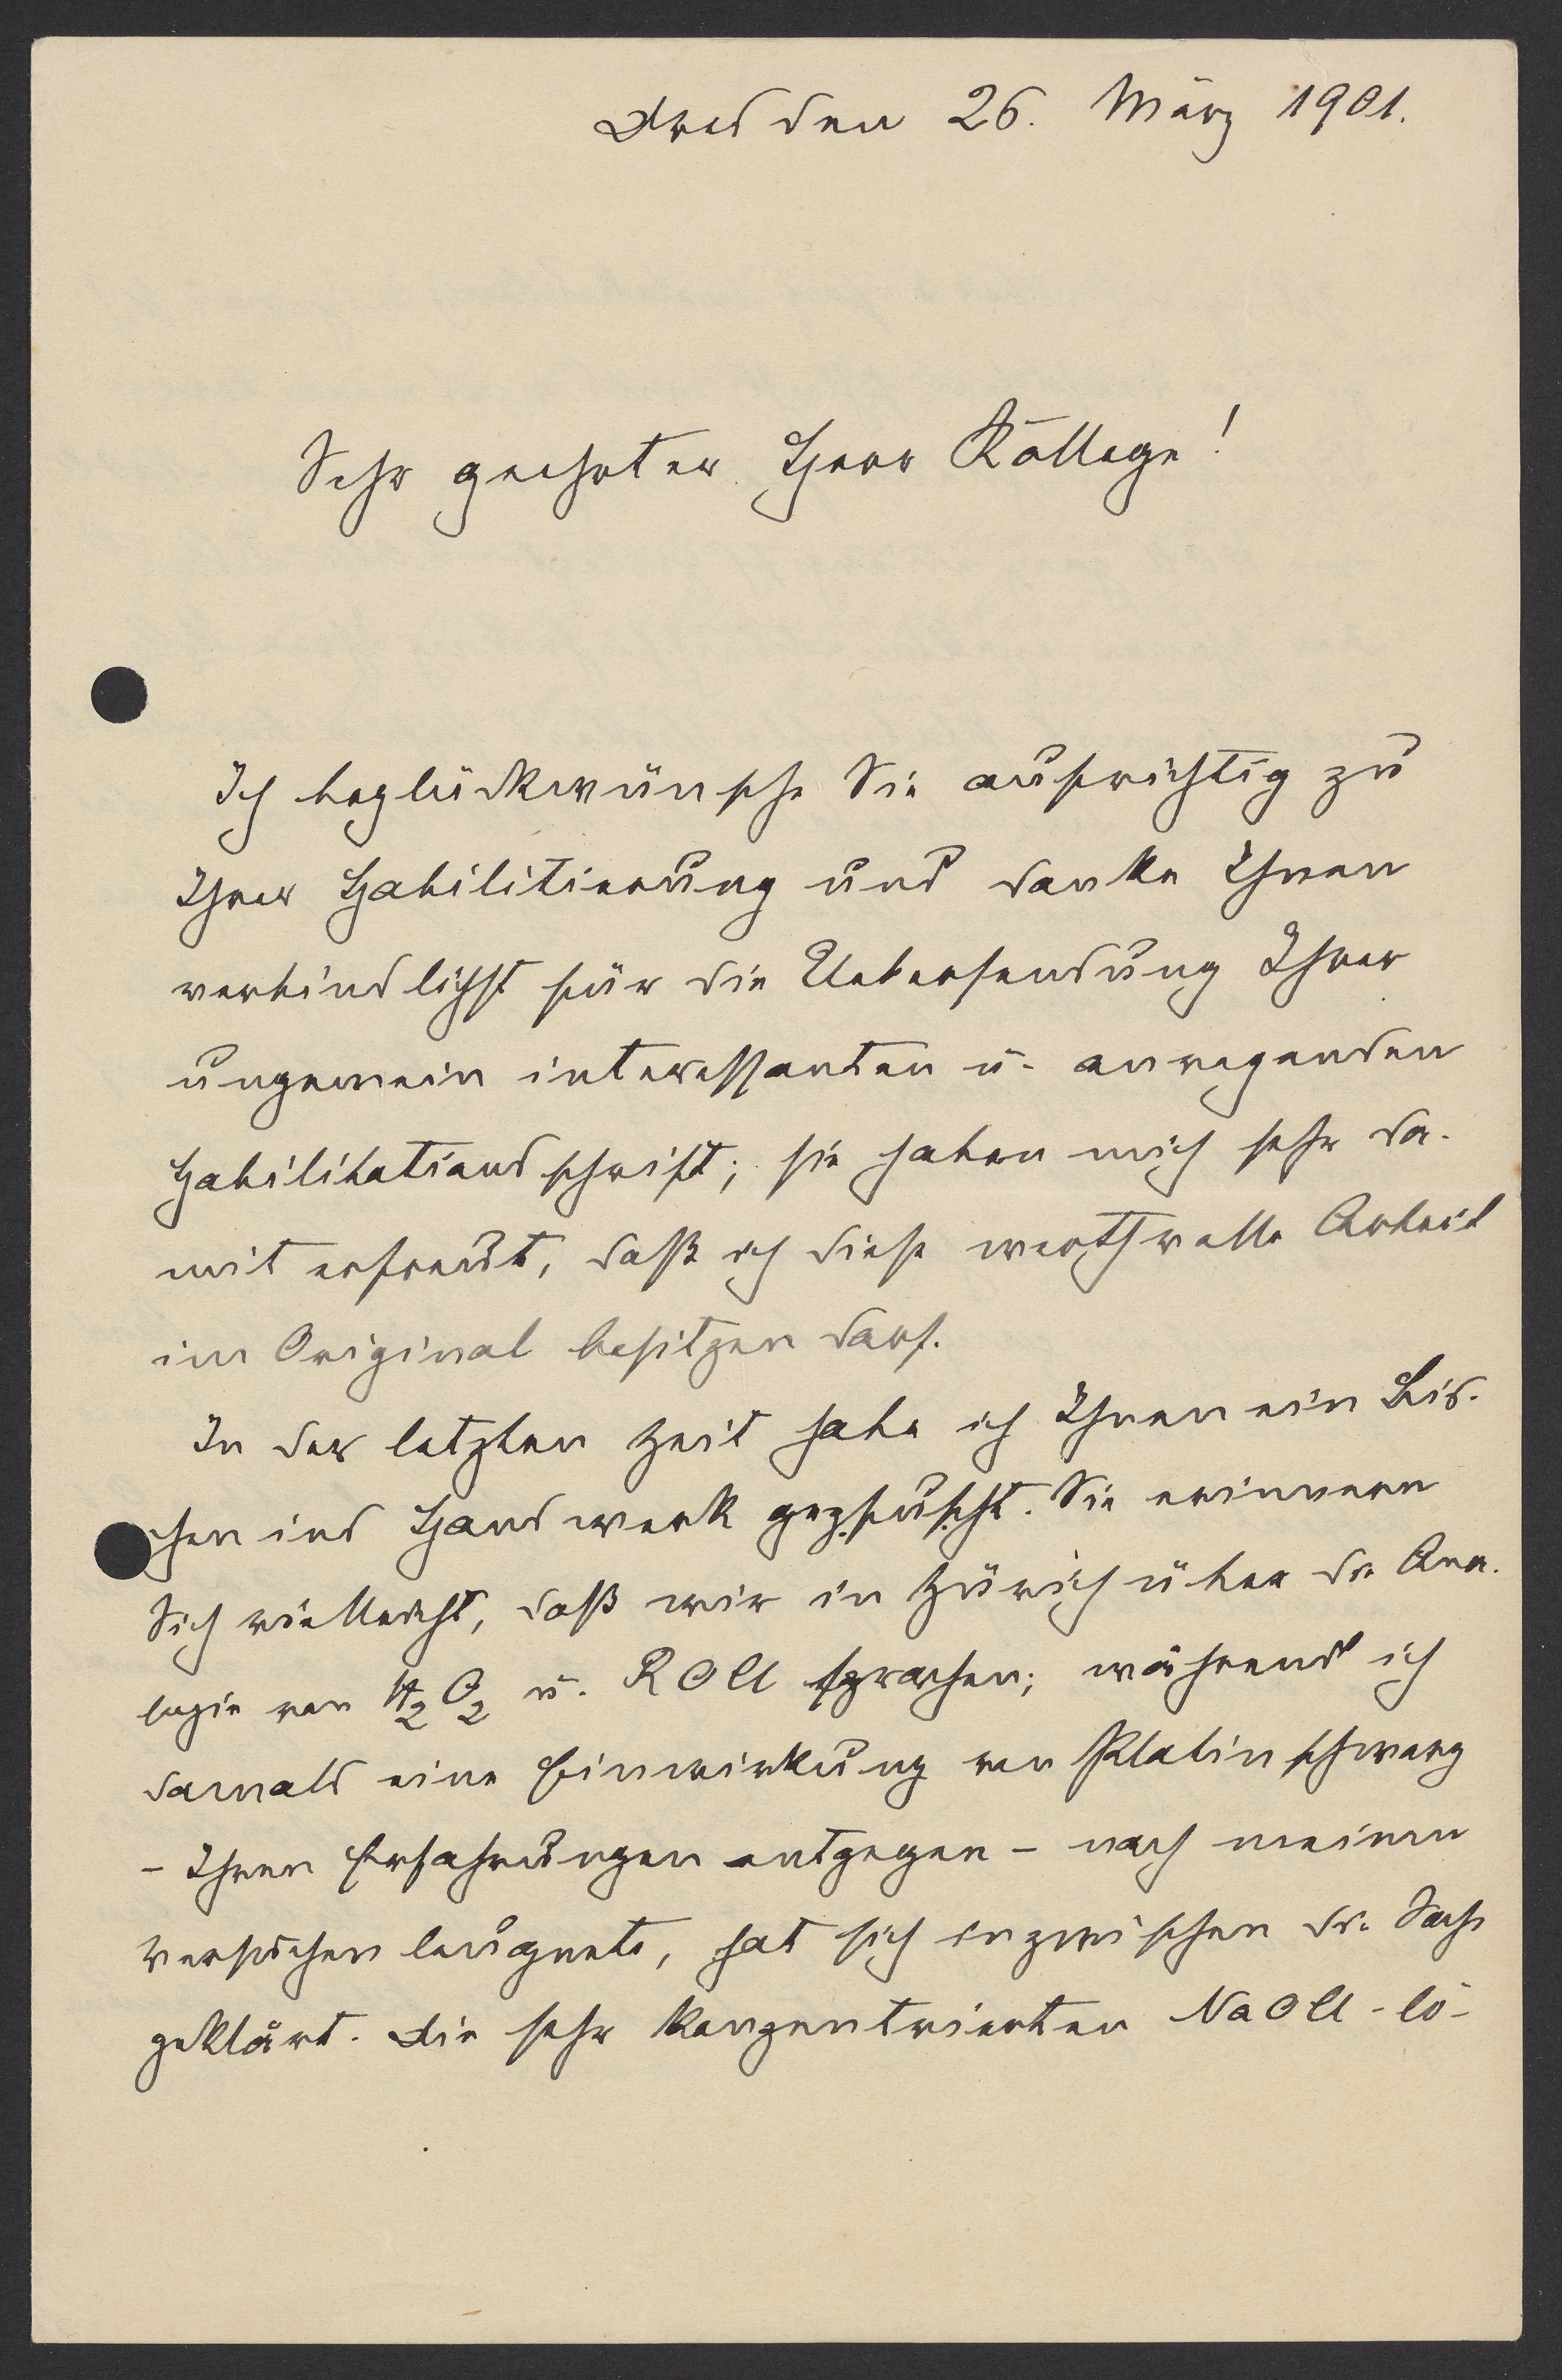 Dresden 26. März 1901.
Sehr geehrter Herr Kollege!
Ich beglückwünsche Sie aufrichtig zu
Ihrer Habilitierung und danke Ihnen
verbindlichst für die Uebersendung Ihrer
ungemein interessanten u. anregenden
Habilitationsschrift; sie haben mich sehr da-
mit erfreut, daß ich diese werthvolle Arbeit
im Original besitzen darf.
In der letzten Zeit habe ich Ihnen ein Bis-
chen ins Handwerk gepfuscht. Sie erinnern
Sich vielleicht, daß wir in Zürich über die Ana-
logie von H2O2 u. ROCl sprachen; während ich
damals eine Einwirkung von Platinschwarz
- Ihren Erfahrungen entgegen - nach meinen
Versuchen leugnete, hat sich inzwischen die Sache
geklärt. Die sehr konzentrierten NaOCl-lö-